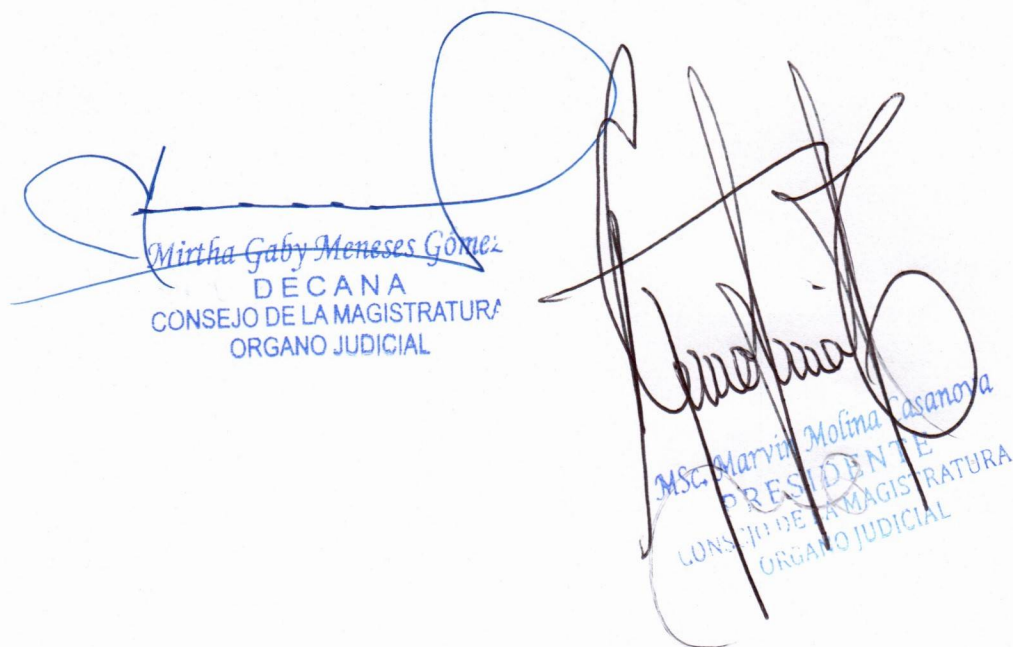 Mirtha Gaby Meneses Gómez
DECANA
CONSEJO DE LA MAGISTRATURA
ORGANO JUDICIAL
MSc. Marvin Molina Casanova
PRESIDENTE
CONSEJO DE LA MAGISTRATURA
ORGANO JUDICIAL